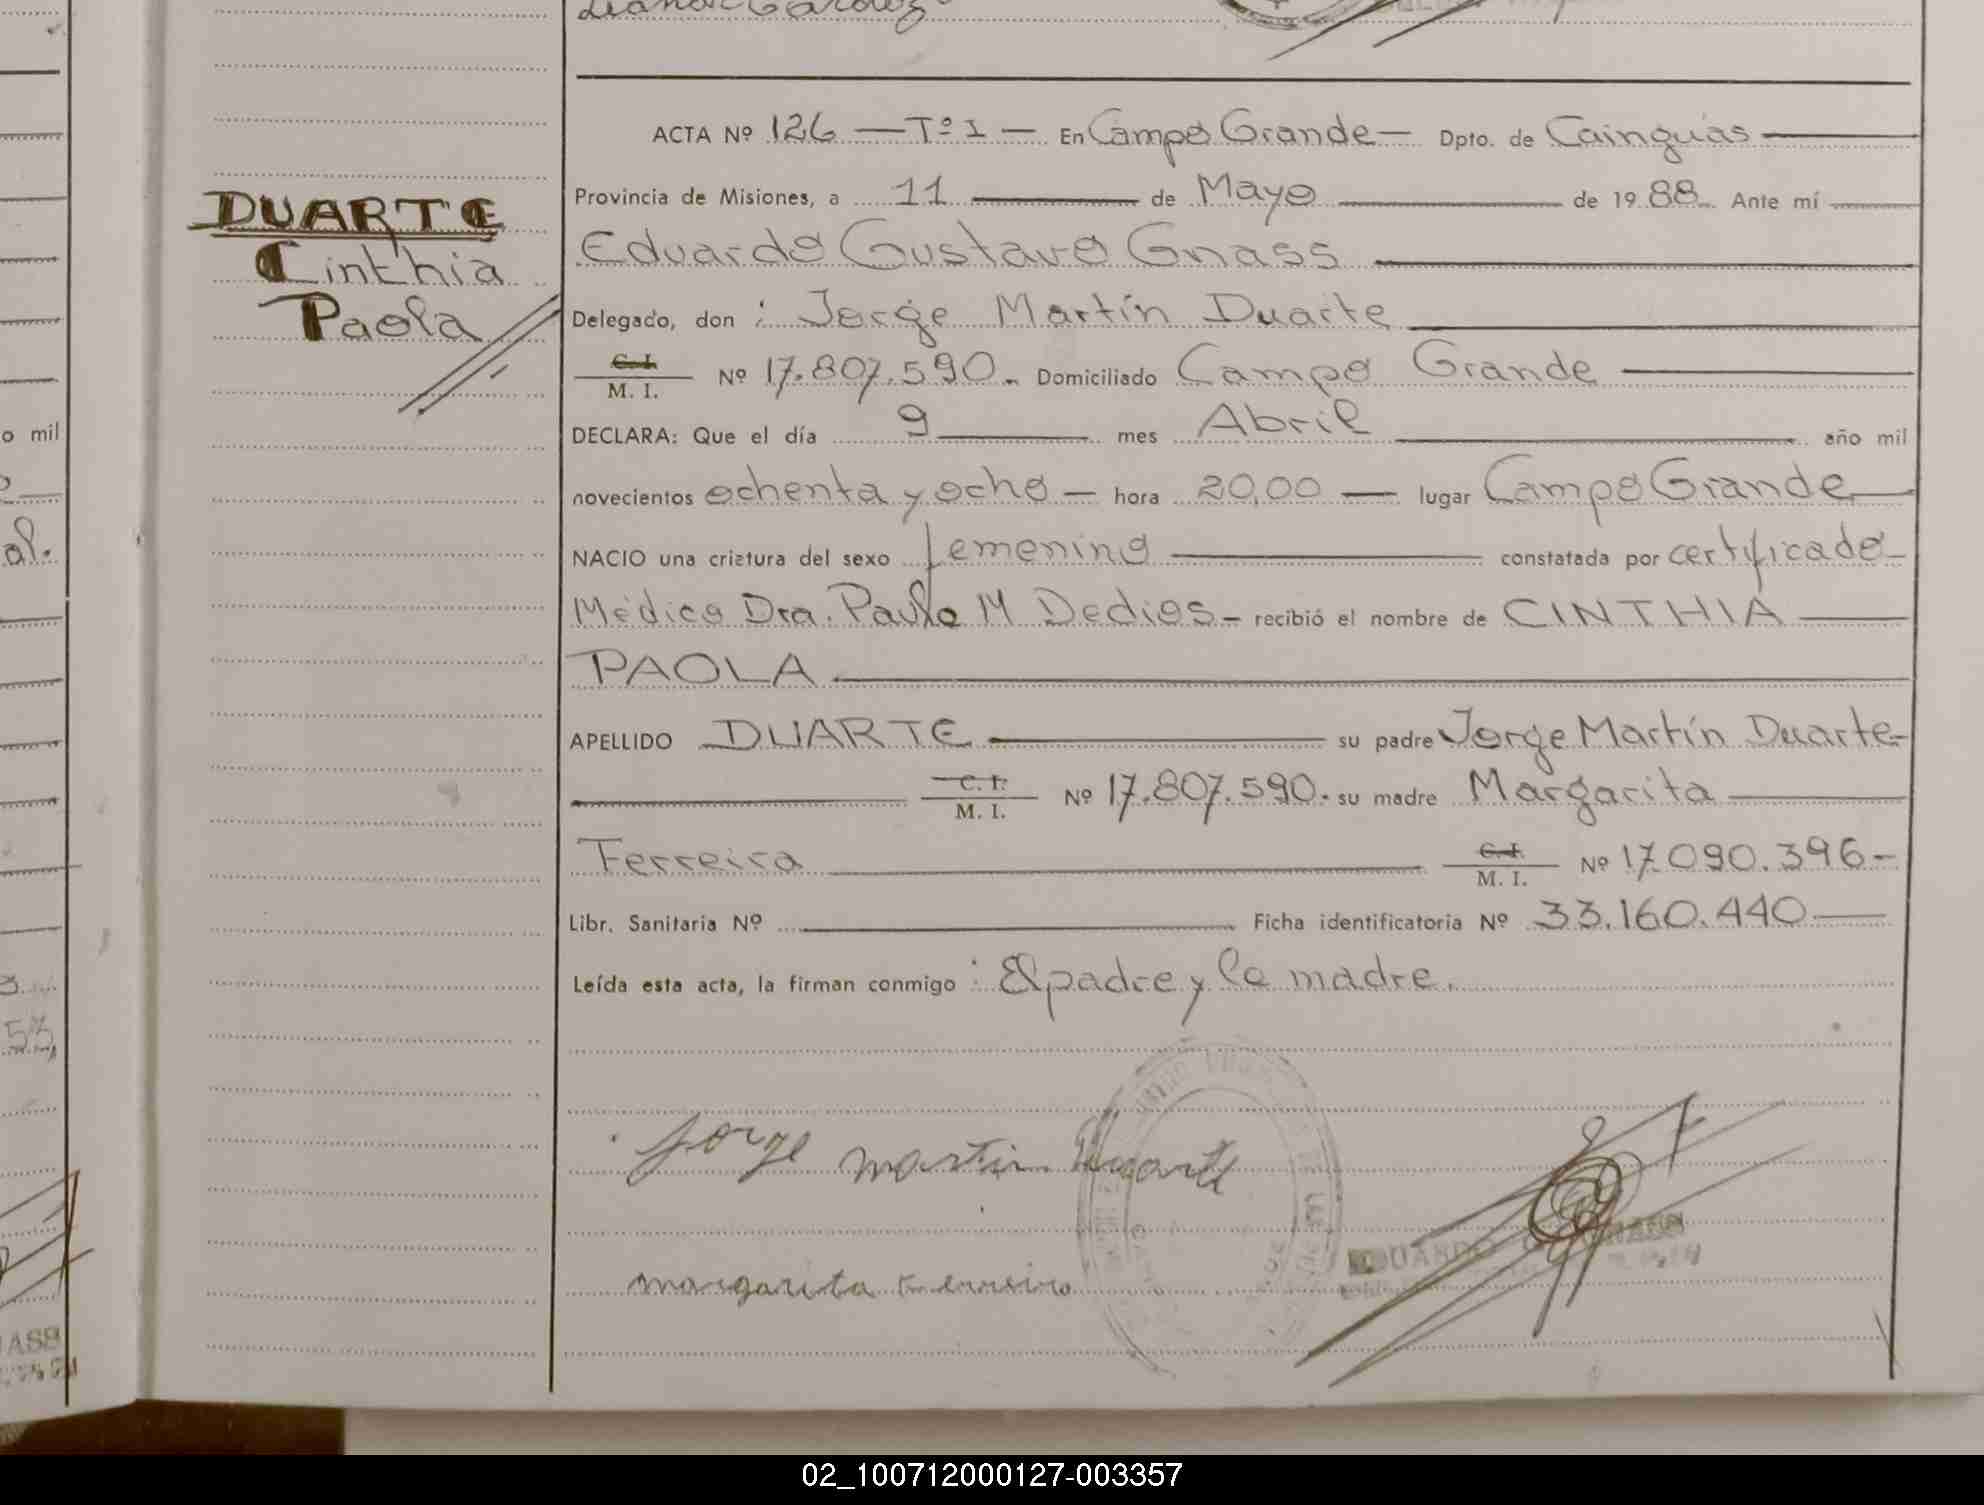 DUARTE
Cinthia
Paola
ACTA Nº 126 — Tº I — En Campo Grande — Dpto. de Cainguás
Provincia de Misiones, a 11 de Mayo de 1988 Ante mí
Eduardo Gustavo Gnass
Delegado, don : Jorge Martín Duarte
C. I.
M. I. Nº 17.807.590. Domiciliado Campo Grande
DECLARA: Que el día 9 mes Abril año mil
novecientos ochenta y ocho — hora 20,00 — lugar Campo Grande
NACIO una criatura del sexo femenino constatada por certificado
Médico Dra. Paula M Dedios - recibió el nombre de CINTHIA
PAOLA
APELLIDO DUARTE su padre Jorge Martín Duarte-
C. I.
M. I. Nº 17.807.590. su madre Margarita
Ferreira C. I.
M. I. Nº 17.090.396-
Libr. Sanitaria Nº Ficha identificatoria Nº 33.160.440
Leída esta acta, la firman conmigo : El padre y la madre.
Jorge martin Duarte
EDUARDO G. GNASS
margarita Ferreira
o mil
al.
53,
02_100712000127-003357